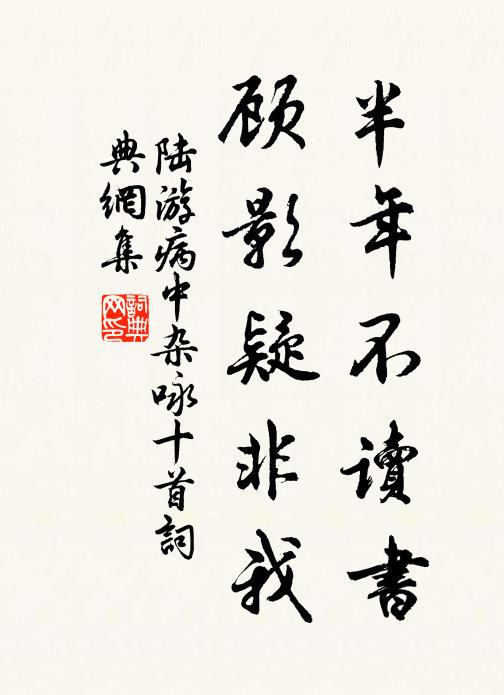 半年不讀書
顾影疑非我
陆游病中杂咏十首詞
典網集
詞典网印